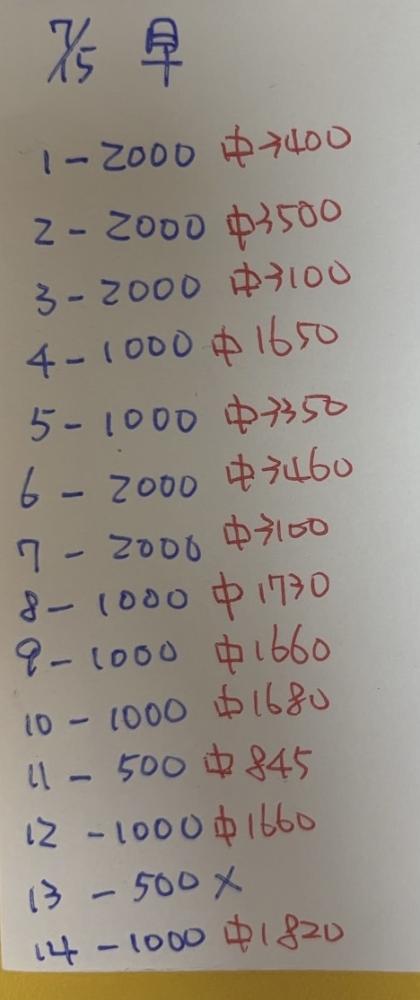 7/15 早
1-2000 中3400
2-2000 中3500
3-2000 中3100
4-1000 中1650
5-1000 中3350
6-2000 中3460
7-2000 中3100
8-1000 中1730
9-1000 中1660
10-1000 中1680
11-500 中845
12-1000 中1660
13-500 X
14-1000 中1820